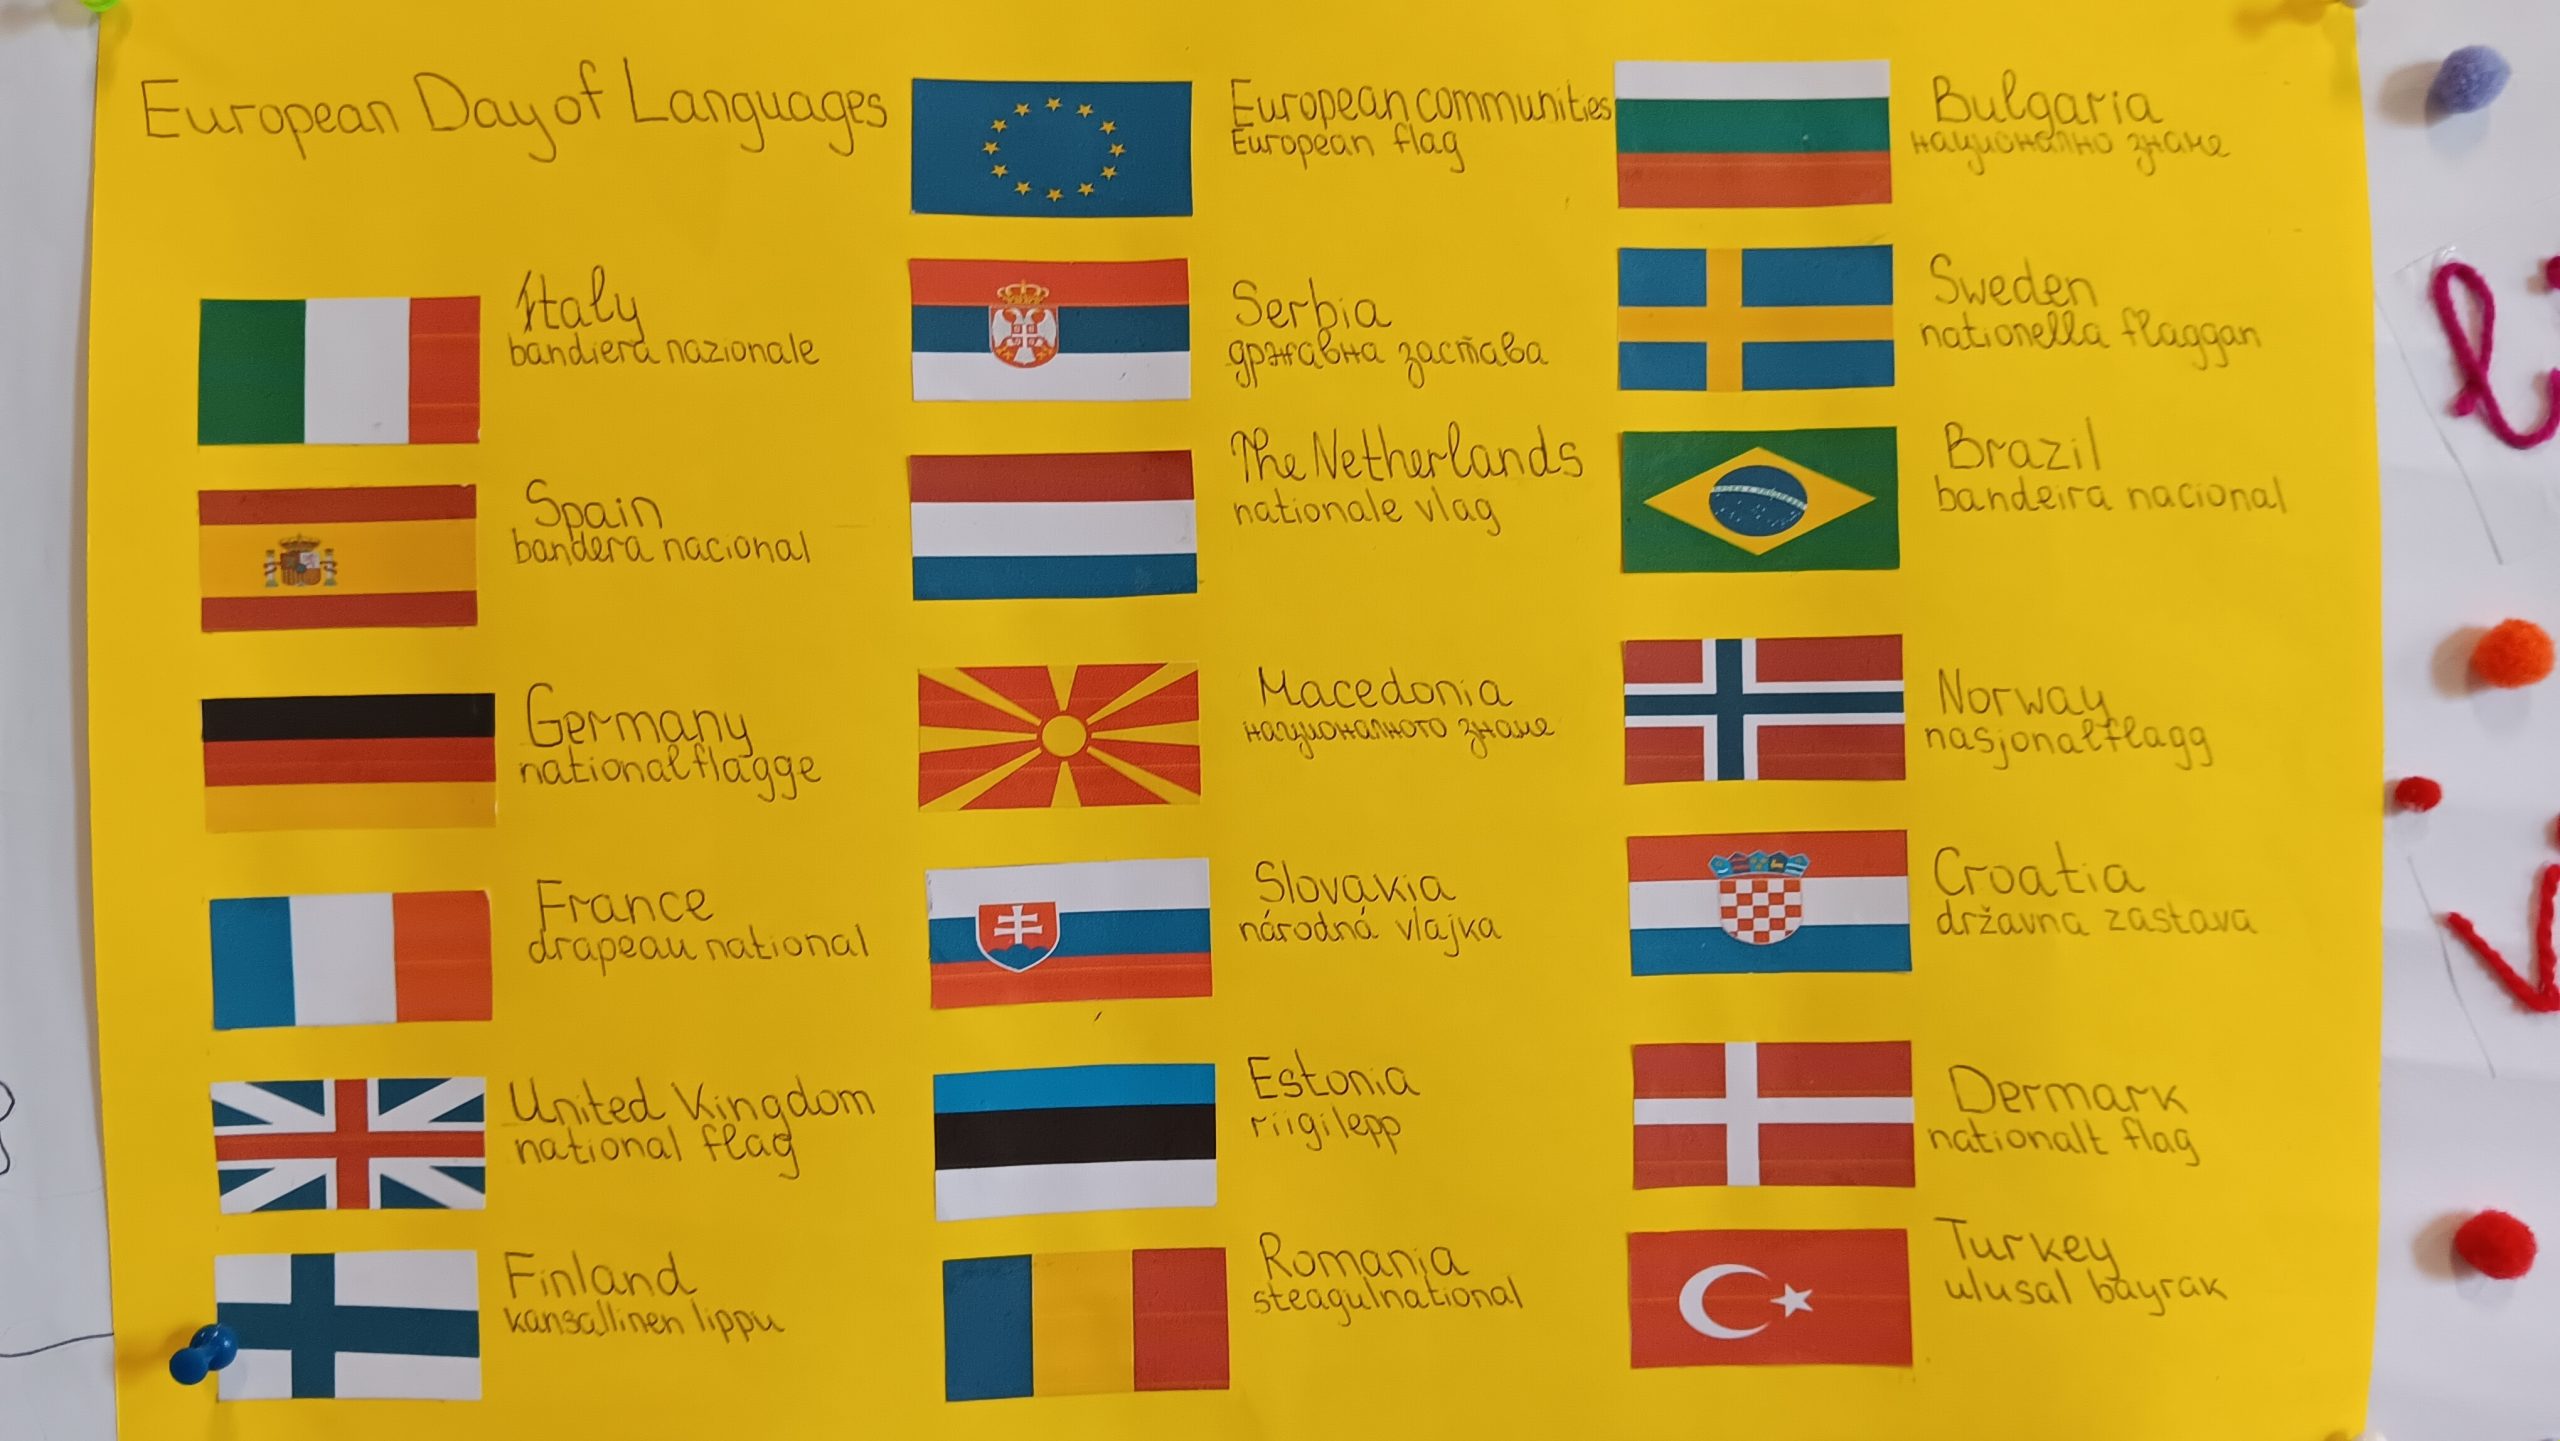 European Day of Languages
Italy
bandiera nazionale
Spain
bandera nacional
Germany
nationalflagge
France
drapeau national
United Kingdom
national flag
Finland
kansallinen lippu
European communities
European flag
Serbia
државна застава
The Netherlands
nationale vlag
Macedonia
националното знаме
Slovakia
národná vlajka
Estonia
riigilepp
Romania
steagulnational
Bulgaria
национално знаме
Sweden
nationella flaggan
Brazil
bandeira nacional
Norway
nasjonalflagg
Croatia
državna zastava
Denmark
nationalt flag
Turkey
ulusal bayrak